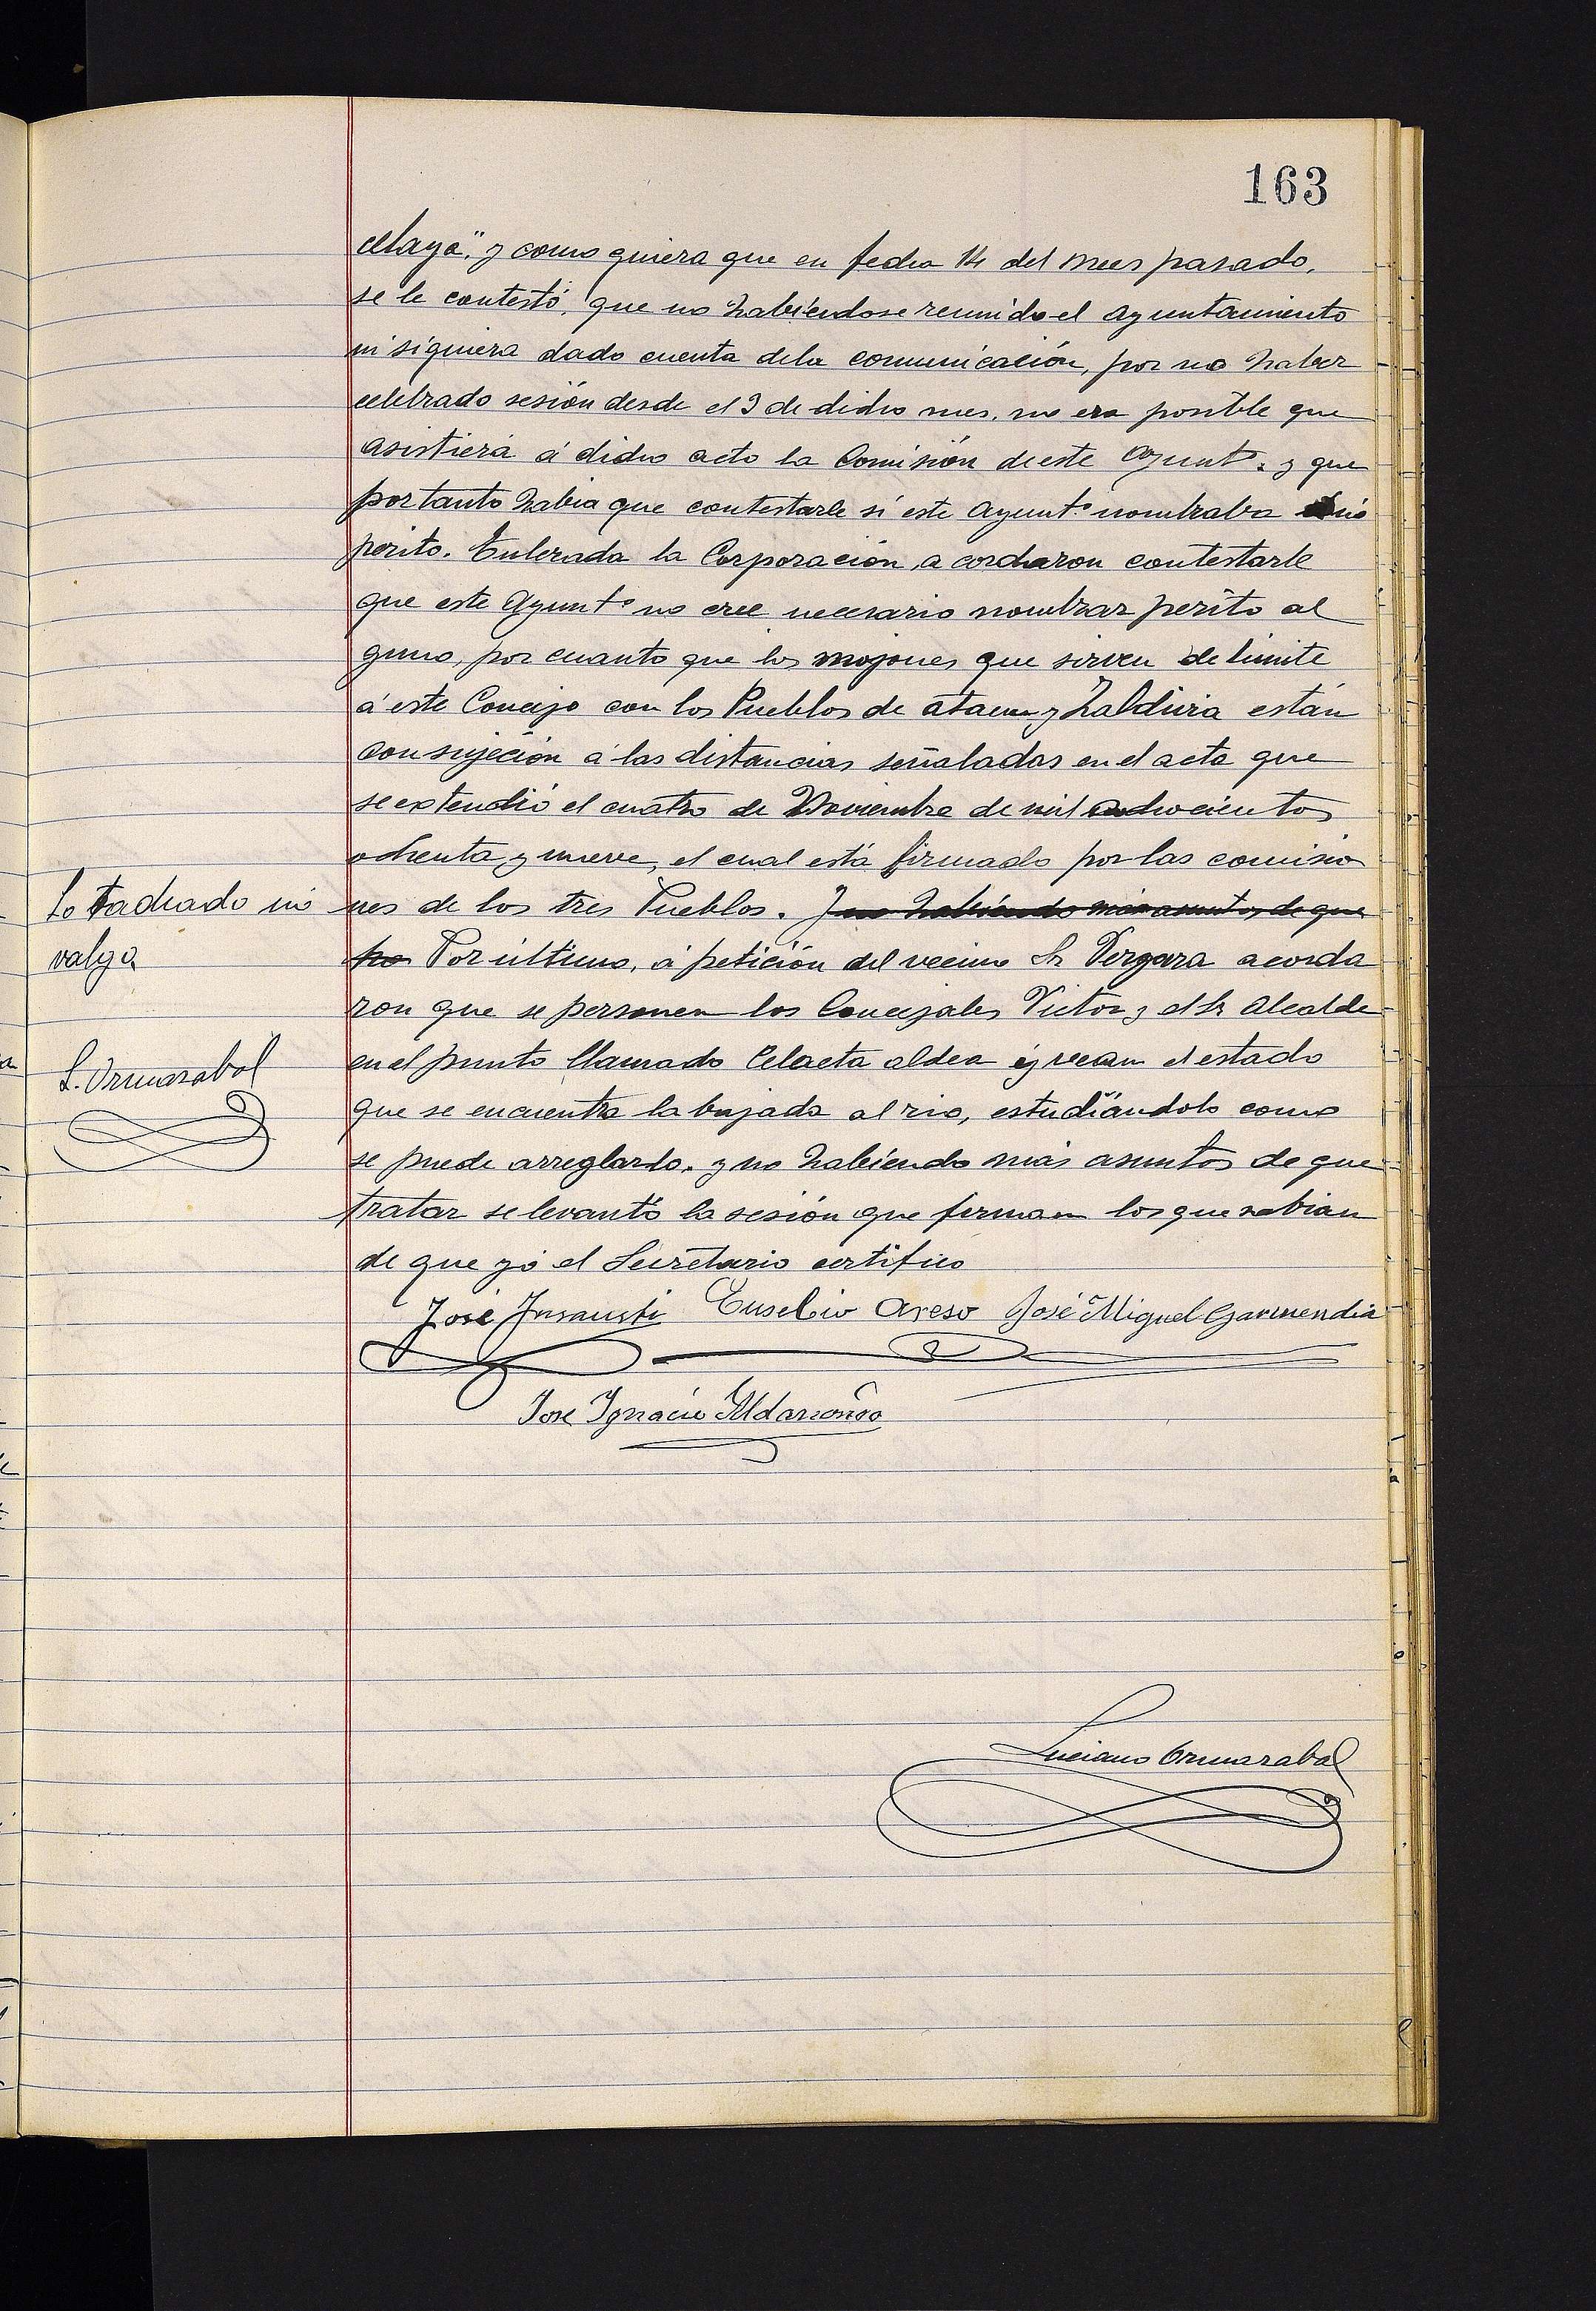 163
y como quiera que en fecha 14 del mes pasado,
se le contestó, que no habiéndose reunido el ayuntamiento
ni siquiera dado cuenta dela comunicación, por no haber
celebrado sesión desde el 9 de dicho mes, no era posible que
asistierá á dicho acto la Comisión de este Ayunt.º y que
por tanto habia que contestarle si este Ayunt.º nombraba
perito. Enterada la Corporación, a cordaron contestarle
que este Ayunt.º no cree necesario nombrar perito al
guno, por cuanto que los mojones que sirven de limite
á este Concejo con los Pueblos de ataun y Zaldivia están
con sujeción á las distancias señaladas en el acta que
se extendió el cuatro de Noviembre de mil ochocientos
ochenta y nueve, el cual está firmado por las comisio
Lo tachado no
valga
L. Ormazabal
nes de los tres Pueblos. Y no habiendo más asuntos de que
Por último, á petición del vecino Sr Vergara acorda
ron que se personen los Concejales Victor y el Sr Alcalde
en el punto llamado Celaeta aldea y vean el estado
que se encuentra la bajada al rio, estudiándolo como
se puede arreglarlo. y no habiendo más asuntos de que
tratar se levantó la sesión que firman los que sabian
de que yó el Secretario certifico
José Insausti Eusebio Areso José Miguel Garmendia
José Ignacio Aldasoro
Luciano Ormazabal